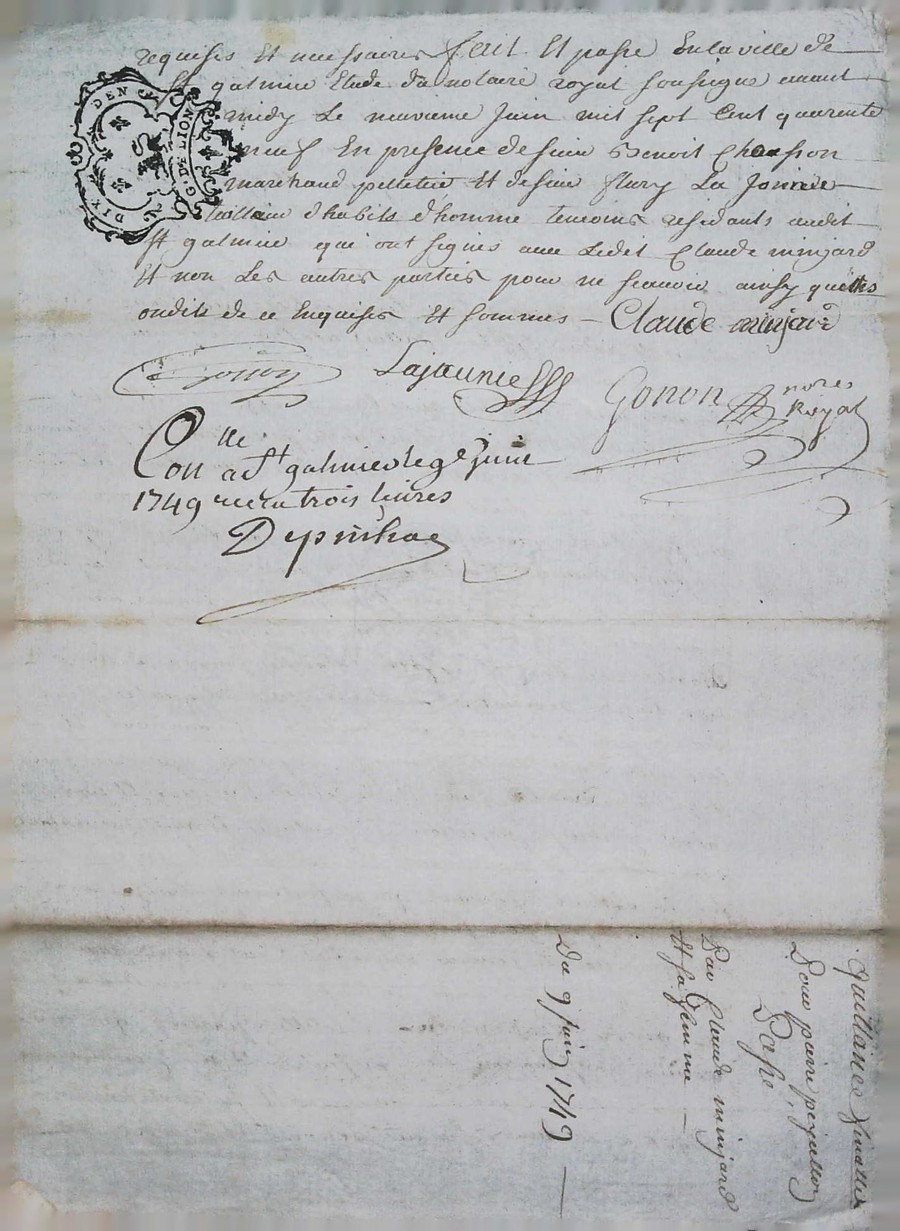 requises et necessaires fait et passé en la ville de
St galmier Etude du notaire royal soussigné avant
midy Le neuvieme Juin mil sept Cent quarente
neuf En presence de sieur Benoit
marchand pelletier Et de sieur fleury La Jonnie
tailleur d'habits d'homme temoins residants audit
St galmier qui ont signés avec Ledit Claude minjard
Et non Les autres parties pour ne scavoir ainsy quelles
ondits de ce Enquises Et sommes – Claude minjard
Lajaunie
Gonon nore
Royal
DIX DEN
G. DE LION
Conlle a St galmier le 9e Juin
1749 recu trois livres
quittance finalle
pour pierre
Passé
Par Claude minjard
Et sa femme –
Du 9 juin 1749 –